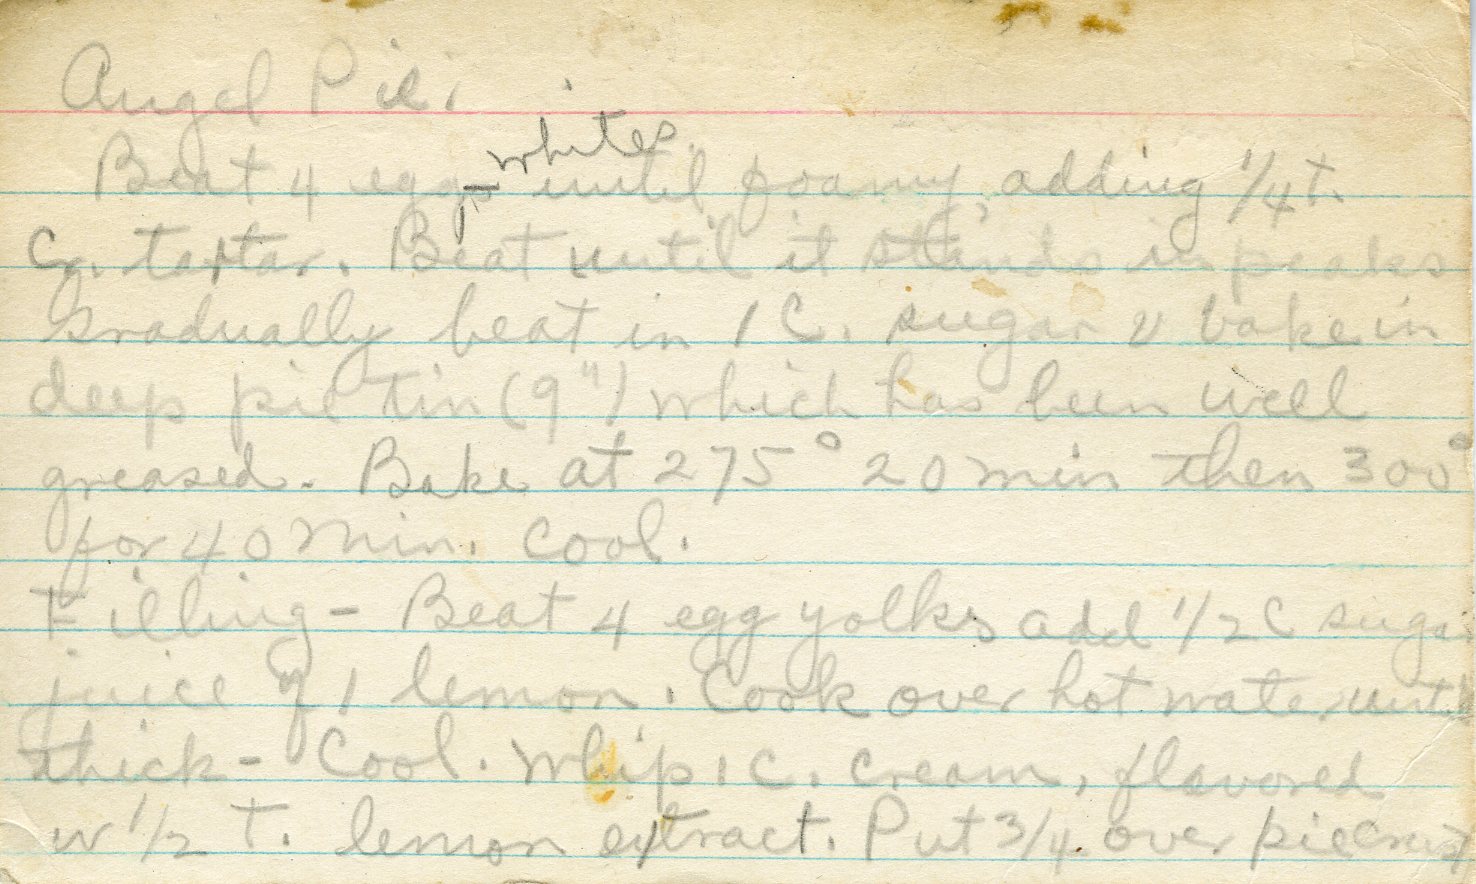 Angel Pie.
Beat 4 egg whites until foamy, adding 1/4 t.
Cr. tartar. Beat until it stands in peaks
Gradually beat in 1 C. sugar & bake in
deep pie tin (9") which has been well
greased. Bake at 275° 20 min then 300°
for 40 min. Cool.
Filling - Beat 4 egg yolks add 1/2 C sugar
juice of 1 lemon. Cook over hot water until
thick - Cool. Whip 1 C. cream, flavored
w 1/2 t. lemon extract. Put 3/4 over pie crust